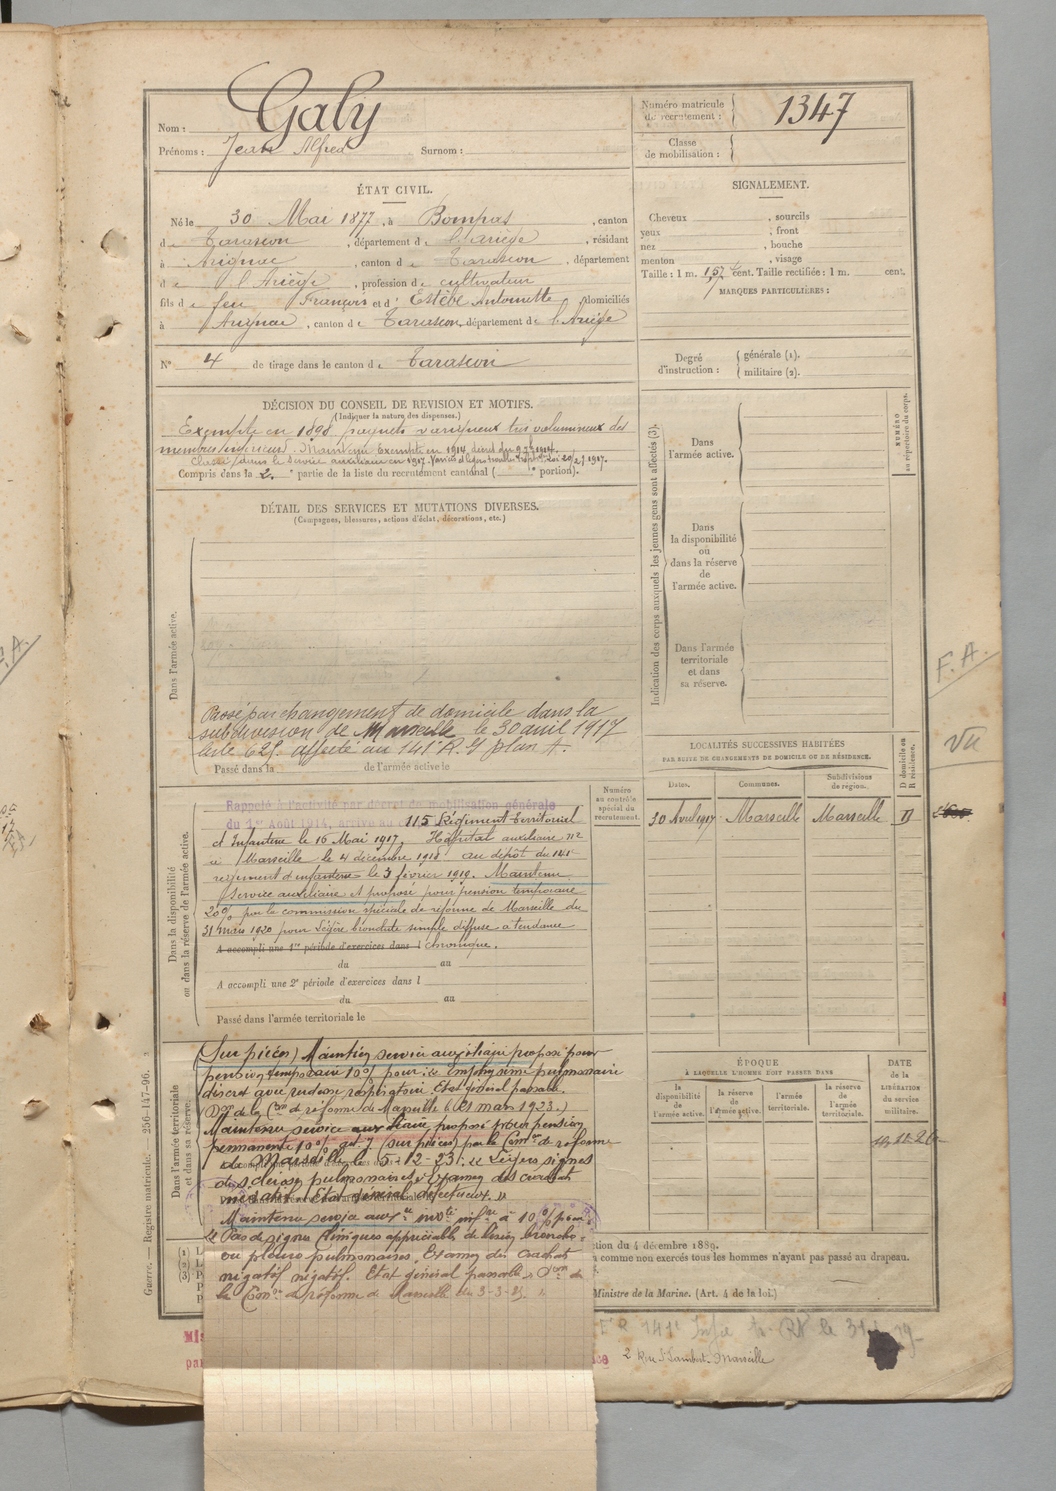 Nom : Galy
Prénoms : Jean Alfred Surnom :
Numéro matricule du recrutement : 1347
Classe de mobilisation :
ÉTAT CIVIL.
Né le 30 Mai 1877, à Bompas, canton
de Tarascon, département de l'Ariège, résidant
à Arignac, canton de Tarascon, département
de l'Ariège, profession de cultivateur
fils de feu François et d' Estèbe Antoinette, domiciliés
à Arignac, canton de Tarascon, département de l'Ariège
N° 4 de tirage dans le canton de Tarascon
SIGNALEMENT.
Cheveux , sourcils
yeux , front
nez , bouche
menton , visage
Taille : 1 m. 57 cent. Taille rectifiée : 1 m. cent.
MARQUES PARTICULIÈRES :
Degré d'instruction : générale (1).
militaire (2).
DÉCISION DU CONSEIL DE REVISION ET MOTIFS.
(Indiquer la nature des dispenses.)
Exempté en 1898 paquets variqueux très volumineux des
membres inférieurs. Maintenu Exempté en 1914 décret du 9 7bre 1914.
Classé dans le service auxiliaire en 1917. Loi 20/2/1917.
Compris dans la 2e partie de la liste du recrutement cantonal ( e portion).
DÉTAIL DES SERVICES ET MUTATIONS DIVERSES.
(Campagnes, blessures, actions d'éclat, décorations, etc.)
Dans l'armée active.
Passé par changement de domicile dans la
subdivision de Marseille le 30 avril 1917
affecté au 141e R. I. plan A.
Passé dans la de l'armée active le
Indication des corps auxquels les jeunes gens sont affectés (3).
NUMÉRO au répertoire du corps.
Dans l'armée active.
Dans la disponibilité ou dans la réserve de l'armée active.
Dans l'armée territoriale et dans sa réserve.
F. A.
VII
LOCALITÉS SUCCESSIVES HABITÉES
PAR SUITE DE CHANGEMENTS DE DOMICILE OU DE RÉSIDENCE.
Dates. Communes. Subdivisions de région. D domicile ou R résidence.
30 Avril 1917 Marseille Marseille D
Numéro au contrôle spécial du recrutement.
Dans la disponibilité ou dans la réserve de l'armée active.
Rappelé à l'activité par décret de mobilisation générale
du 1er Août 1914, arrivé au 115 Régiment Territorial
d'Infanterie le 16 Mai 1917. Hôpital auxiliaire n°
à Marseille le 4 décembre 1918 au dépôt du 141e
régiment d'infanterie le 3 février 1919. Maintenu
service auxiliaire et proposé pour pension temporaire
20% par la commission spéciale de réforme de Marseille du
31 Mars 1920 pour légère bronchite simple diffuse à tendance
A accompli une 1re période d'exercices dans l chronique.
du au
A accompli une 2e période d'exercices dans l
du au
Passé dans l'armée territoriale le
Dans l'armée territoriale et dans sa réserve.
(Sur pièces) Maintien service auxiliaire proposé pour
pension temporaire 10% pour : « emphysème pulmonaire
discret avec rudesse respiratoire. Etat général passable.
Don de la Con de réforme de Marseille du 21 mars 1923.)
Maintenu service auxiliaire proposé pour pension
permanente 10% (sur pièces) par la Comon de réforme
de Marseille le 5-12-23 : « Légers signes
de sclérose pulmonaires. Examen des crachats
négatif. Etat général défectueux »
Maintenu service auxre
« Pas de signes cliniques appréciables de lésion broncho
ou pleuro pulmonaires. Examen des crachats
négatif négatif. Etat général passable » Don de
la Comon de réforme de Marseille du 3-3-25.
ÉPOQUE
À LAQUELLE L'HOMME DOIT PASSER DANS
la disponibilité de l'armée active.
la réserve de l'armée active.
l'armée territoriale.
la réserve de l'armée territoriale.
DATE de la LIBÉRATION du service militaire.
ction du 4 décembre 1889.
comme non exercés tous les hommes n'ayant pas passé au drapeau.
Ministre de la Marine. (Art. 4 de la loi.)
Guerre. — Registre matricule. 256-147-96.
2 Rue St Lambert Marseille